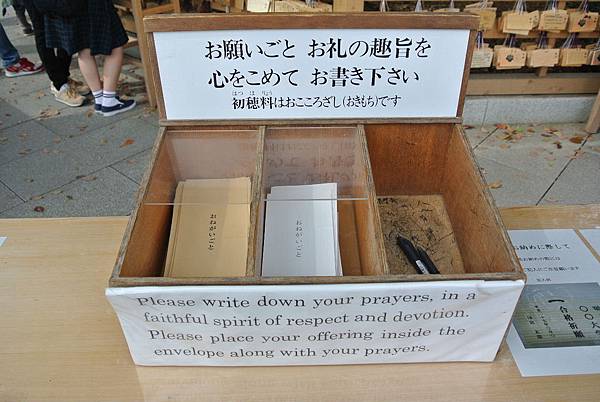 お願いごと お礼の趣旨を
心をこめて お書き下さい
初穂料はおこころざし(おきもち)です
はつ ほ りょう
おねがいごと
おねがいごと
Please write down your prayers, in a
faithful spirit of respect and devotion.
Please place your offering inside the
envelope along with your prayers.
お納めに際して
合格祈願